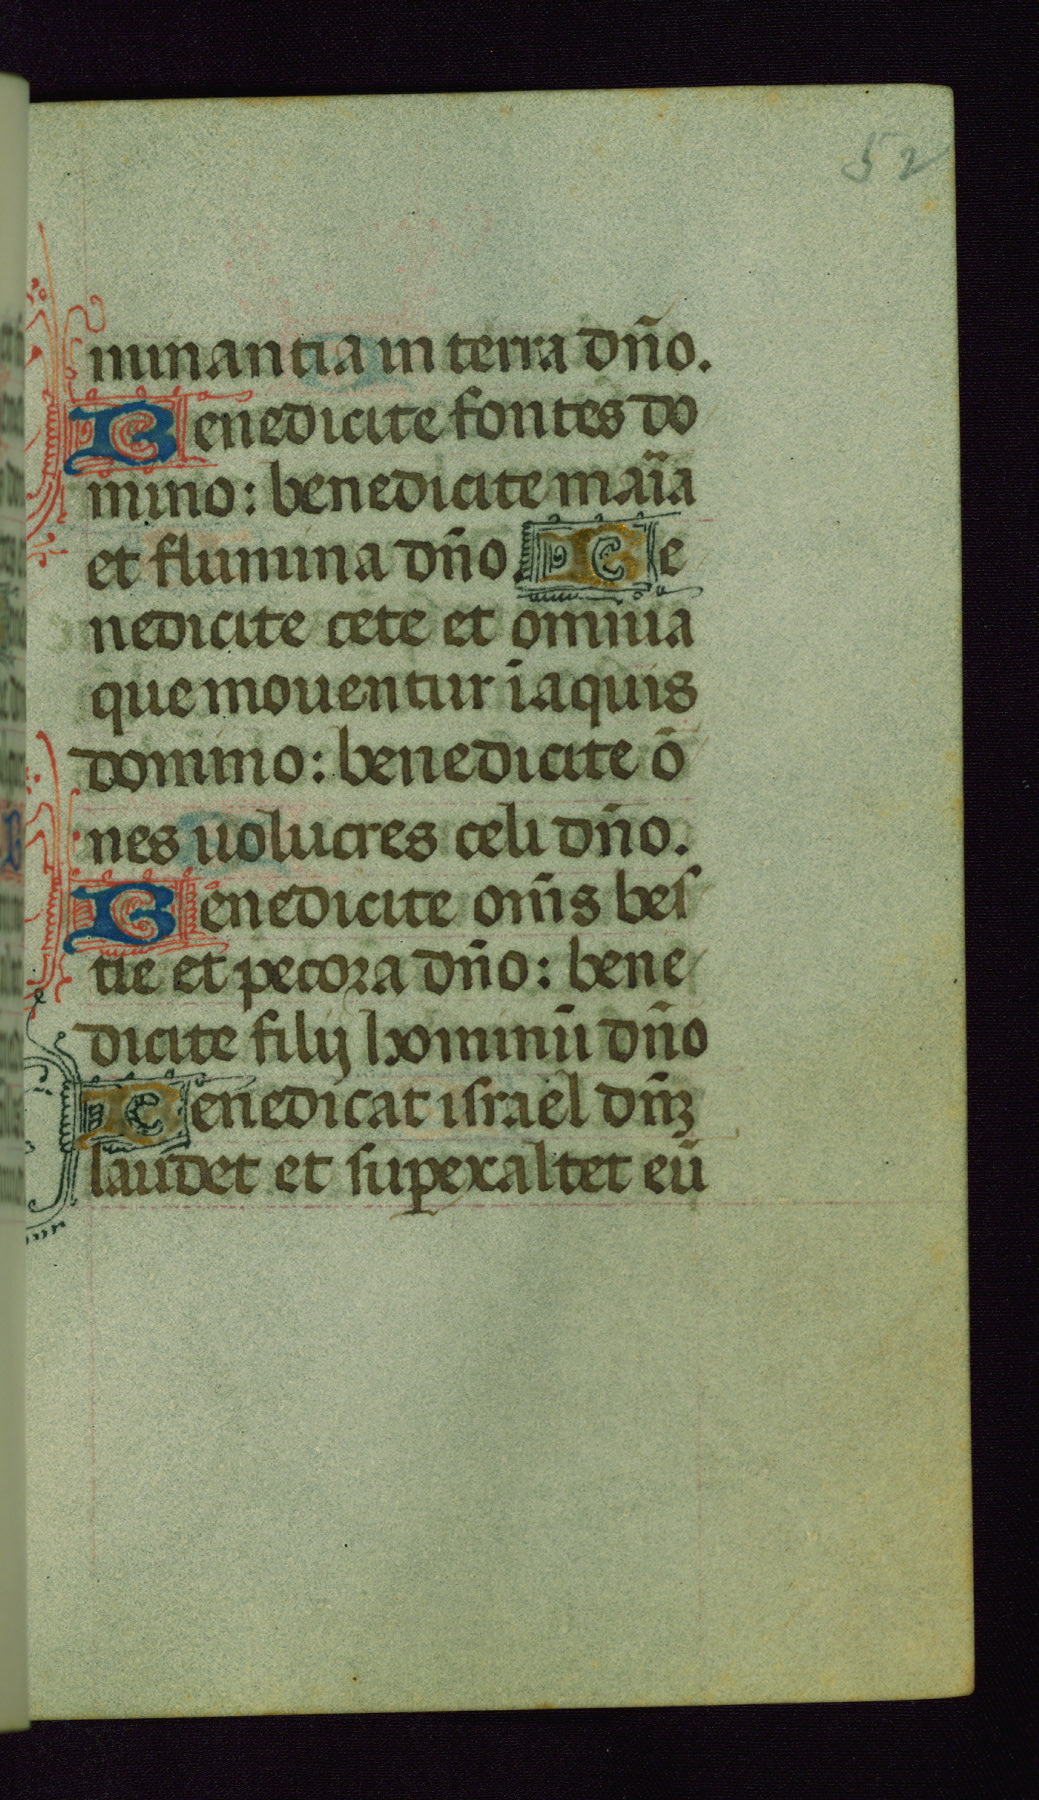 52
minantia in terra dn̄o.
Benedicite fontes do
mino: benedicite mar̄ia
et flumina dn̄o. Be
nedicite cete et omnia
que mouentur ī aquis
domino: benedicite ō
nes uolucres celi dn̄o.
Benedicite om̄s bes
tie et pecora dn̄o: bene
dicite filij hominū dn̄o
Benedicat israel dn̄ꝫ
laudet et suꝑexaltet eū